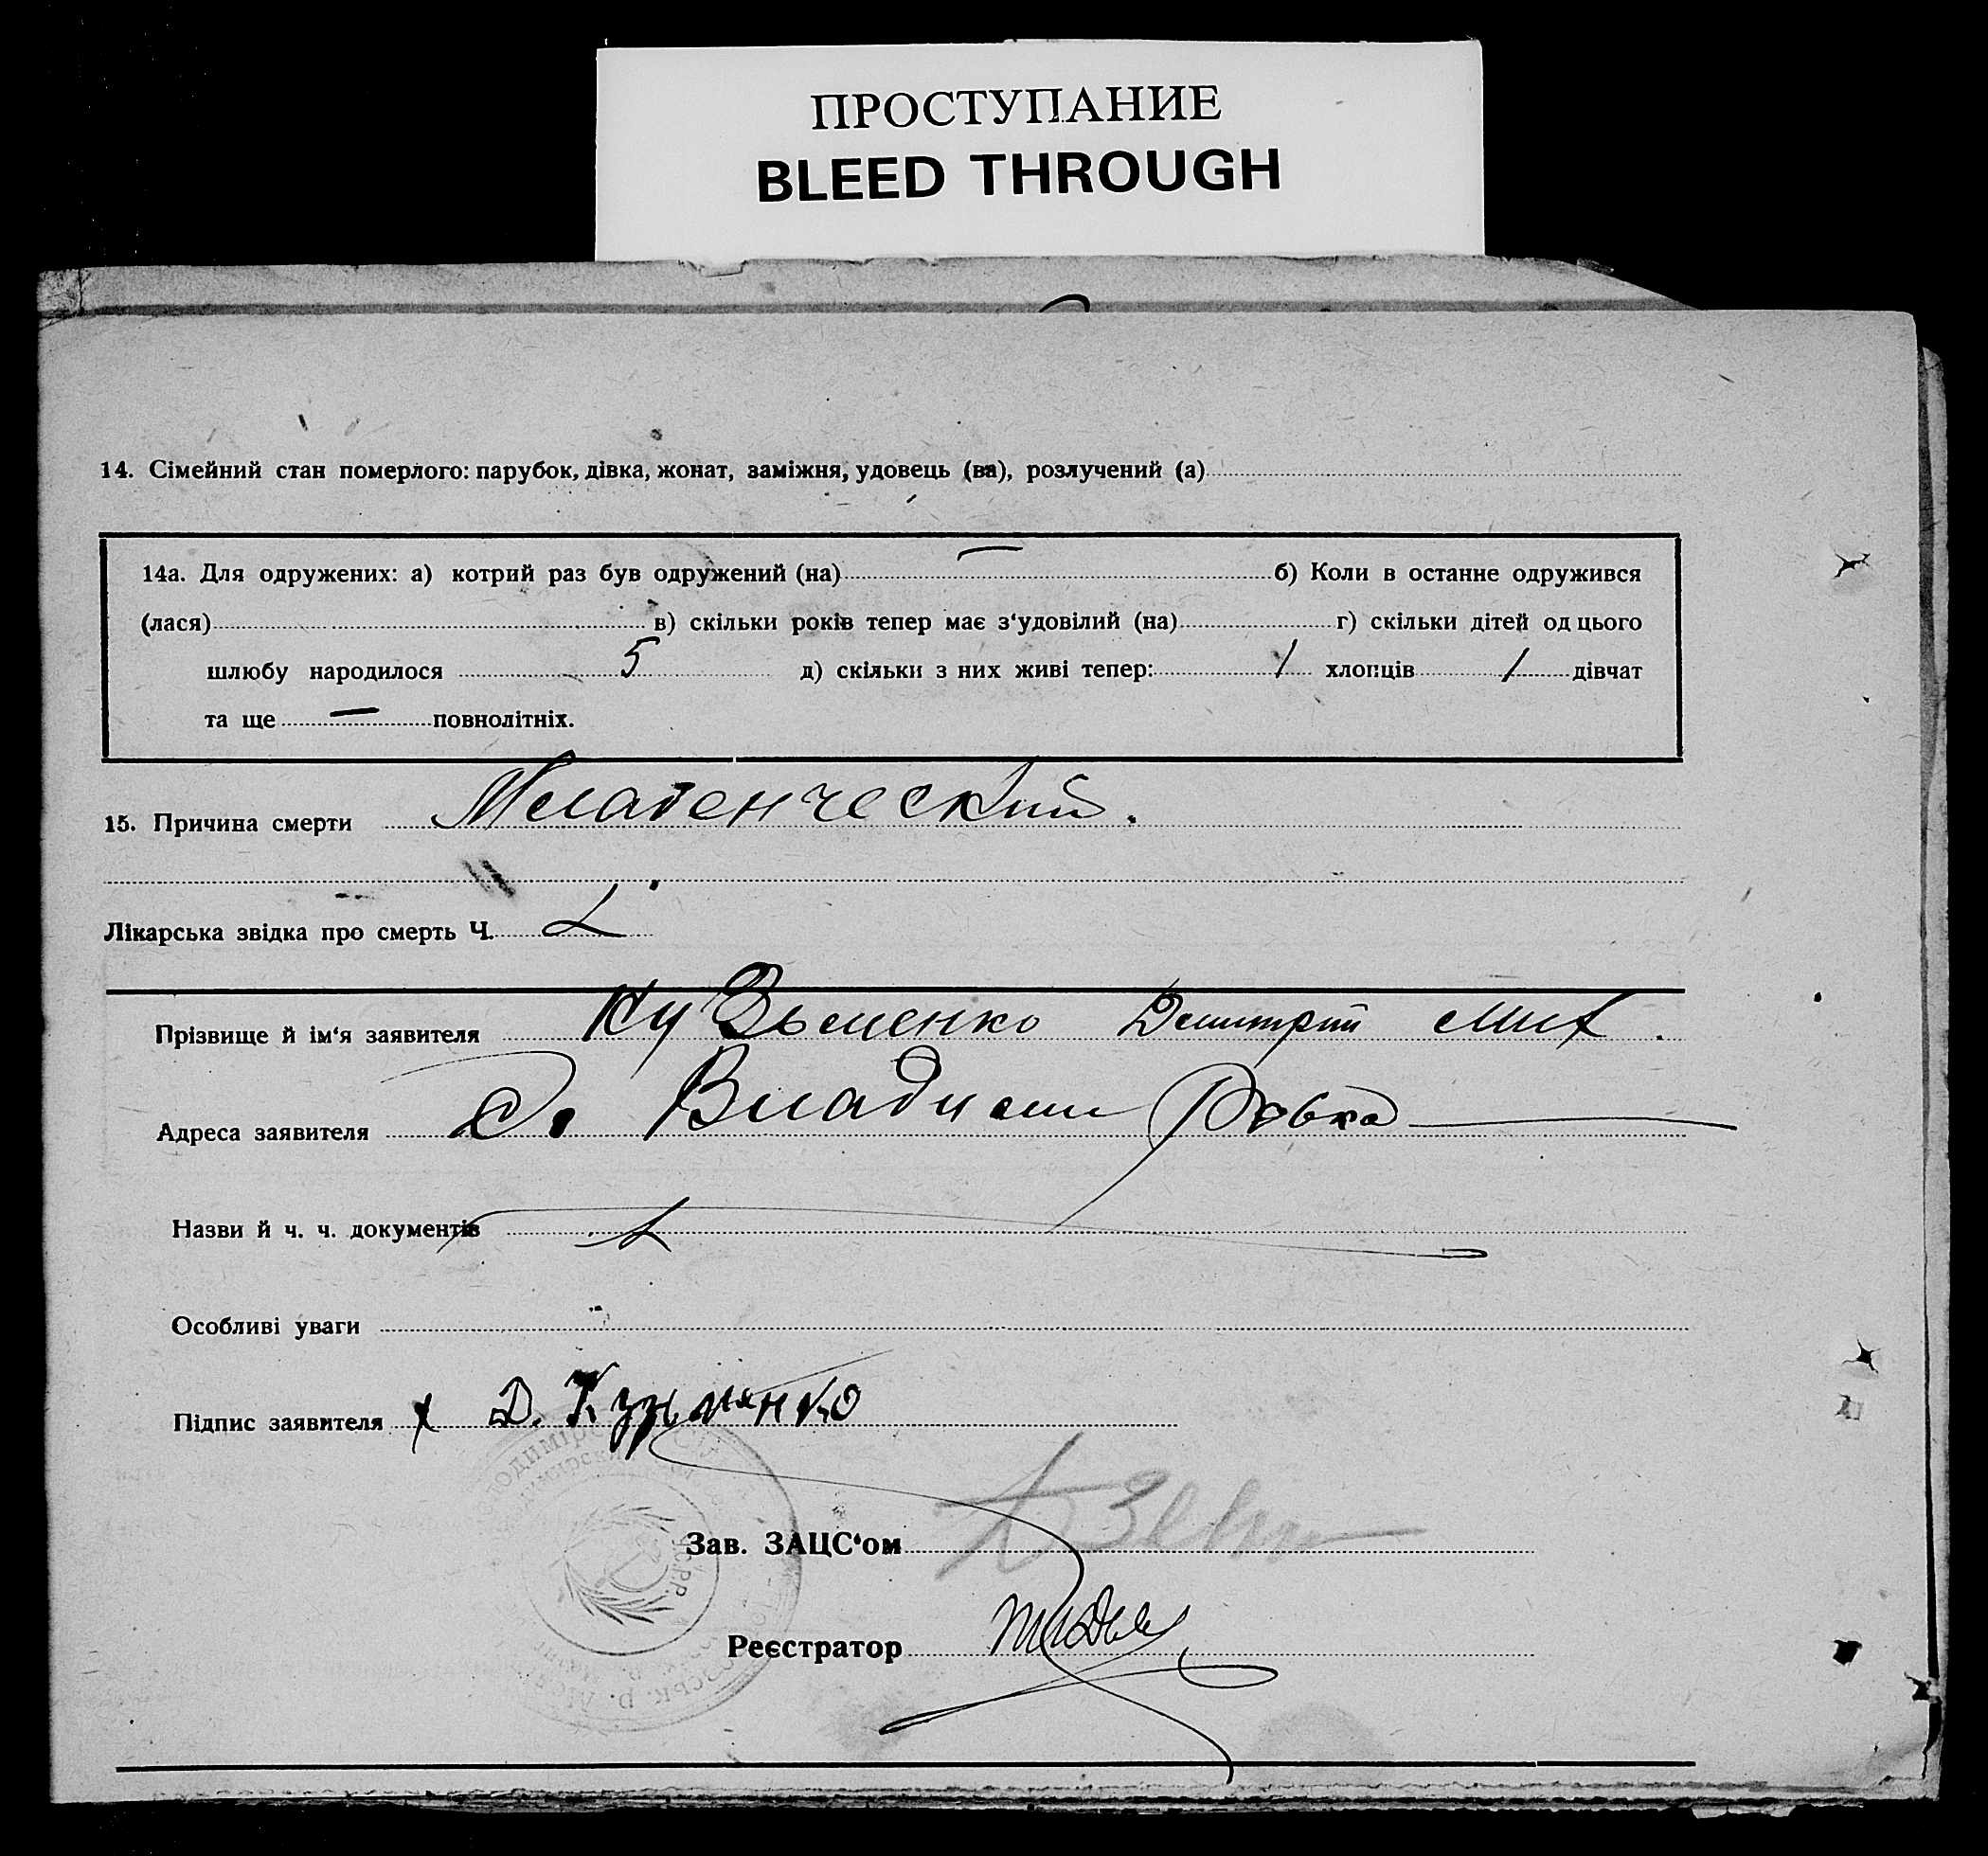 ПРОСТУПАНИЕ
BLEED THROUGH
14. Сімейний стан померлого: парубок, дівка, жонат, заміжня, удовець (ва), розлучений (а)
14а. Для одружених: а) котрий раз був одружений (на) — б) Коли в останнє одружився
(лася) в) скільки років тепер має з‘удовілий (на) г) скільки дітей од цього
шлюбу народилося 5 д) скільки з них живі тепер: 1 хлопців 1 дівчат
та ще — повнолітніх.
15. Причина смерти Младенческий.
Лікарська звідка про смерть Ч.
Прізвище й ім‘я заявителя Кузьменко Димитрий Мих.
Адреса заявителя Владимировка
Назви й ч. ч. документів
Особливі уваги
Підпис заявителя х Д. Кузьменко
Зав. ЗАЦС‘ом
Реєстратор